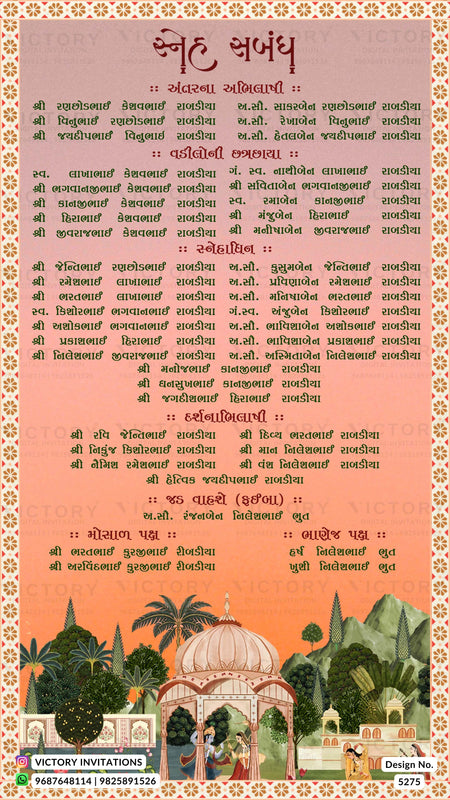 સ્નેહ સબંધ
:: અંતરના અભિલાષી ::
શ્રી રણછોડભાઈ કેશવભાઈ રાબડીયા અ.સૌ. સાકરબેન રણછોડભાઈ રાબડીયા
શ્રી વિનુભાઈ રણછોડભાઈ રાબડીયા અ.સૌ. રેખાબેન વિનુભાઈ રાબડીયા
શ્રી જયદીપભાઈ વિનુભાઈ રાબડીયા અ.સૌ. હેતલબેન જયદીપભાઈ રાબડીયા
:: વડીલોની છત્રછાયા ::
સ્વ. લાખાભાઈ કેશવભાઈ રાબડીયા ગં. સ્વ. નાથીબેન લાખાભાઈ રાબડીયા
શ્રી ભગવાનજીભાઈ કેશવભાઈ રાબડીયા શ્રી સવિતાબેન ભગવાનજીભાઈ રાબડીયા
શ્રી કાનજીભાઈ કેશવભાઈ રાબડીયા સ્વ. રમાબેન કાનજીભાઈ રાબડીયા
શ્રી હિરાભાઈ કેશવભાઈ રાબડીયા શ્રી મંજુબેન હિરાભાઈ રાબડીયા
શ્રી જીવરાજભાઈ કેશવભાઈ રાબડીયા શ્રી મનીષાબેન જીવરાજભાઈ રાબડીયા
:: સ્નેહાધિન ::
શ્રી જેન્તિભાઈ રણછોડભાઈ રાબડીયા અ.સૌ. કુસુમબેન જેન્તિભાઈ રાબડીયા
શ્રી રમેશભાઈ લાખાભાઈ રાબડીયા અ.સૌ. પ્રવિણાબેન રમેશભાઈ રાબડીયા
શ્રી ભરતભાઈ લાખાભાઈ રાબડીયા અ.સૌ. મનિષાબેન ભરતભાઈ રાબડીયા
સ્વ. કિશોરભાઈ ભગવાનભાઈ રાબડીયા ગં.સ્વ. અંજુબેન કિશોરભાઈ રાબડીયા
શ્રી અશોકભાઈ ભગવાનભાઈ રાબડીયા અ.સૌ. ભાવિશાબેન અશોકભાઈ રાબડીયા
શ્રી પ્રકાશભાઈ હિરાભાઈ રાબડીયા અ.સૌ. ભાવિશાબેન પ્રકાશભાઈ રાબડીયા
શ્રી નિલેશભાઈ જીવરાજભાઈ રાબડીયા અ.સૌ. અસ્મિતાબેન નિલેશભાઈ રાબડીયા
શ્રી મનોજભાઈ કાનજીભાઈ રાબડીયા
શ્રી ધનસુખભાઈ કાનજીભાઈ રાબડીયા
શ્રી જગદીશભાઈ હિરાભાઈ રાબડીયા
:: દર્શનાભિલાષી ::
શ્રી રવિ જેન્તિભાઈ રાબડીયા શ્રી દિવ્ય ભરતભાઈ રાબડીયા
શ્રી નિકુંજ કિશોરભાઈ રાબડીયા શ્રી માન નિલેશભાઈ રાબડીયા
શ્રી નૈમિશ રમેશભાઈ રાબડીયા શ્રી વંશ નિલેશભાઈ રાબડીયા
શ્રી હેત્વિક જયદીપભાઈ રાબડીયા
:: જડ વાહશે (ફઈબા) ::
અ.સૌ. રંજનબેન નિલેશભાઈ ભુત
:: મોસાળ પક્ષ :: :: ભાણેજ પક્ષ ::
શ્રી ભરતભાઈ કુરજીભાઈ રીબડીયા હર્ષ નિલેશભાઈ ભુત
શ્રી અરવિંદભાઈ કુરજીભાઈ રીબડીયા ખુશી નિલેશભાઈ ભુત
VICTORY INVITATIONS
9687648114 | 9825891526
Design No.
5275